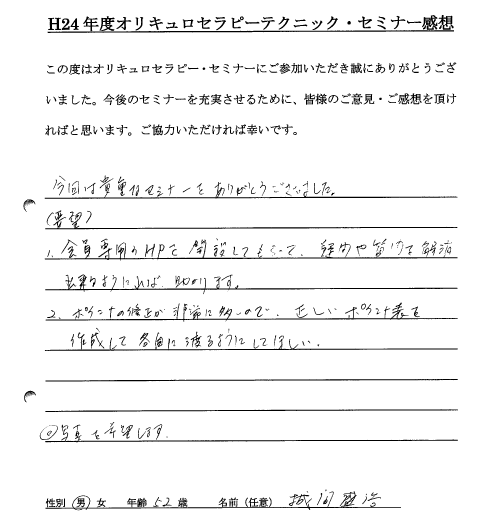 H24年度オリキュロセラピーテクニック・セミナー感想
この度はオリキュロセラピー・セミナーにご参加いただき誠にありがとうござ
いました。今後のセミナーを充実させるために、皆様のご意見・ご感想を頂け
ればと思います。ご協力いただければ幸いです。
今回は貴重なセミナーをありがとうございました。
(要望)
1、会員専用のHPを開設してもらって、疑問や質問を解消
出来るようにすれば、助かります。
2、ポイントの修正が非常に多いので、正しいポイント表を
作成して各自に渡るようにしてほしい。
写真を希望します。
性別 男 女 年齢 52 歳 名前(任意) 城間